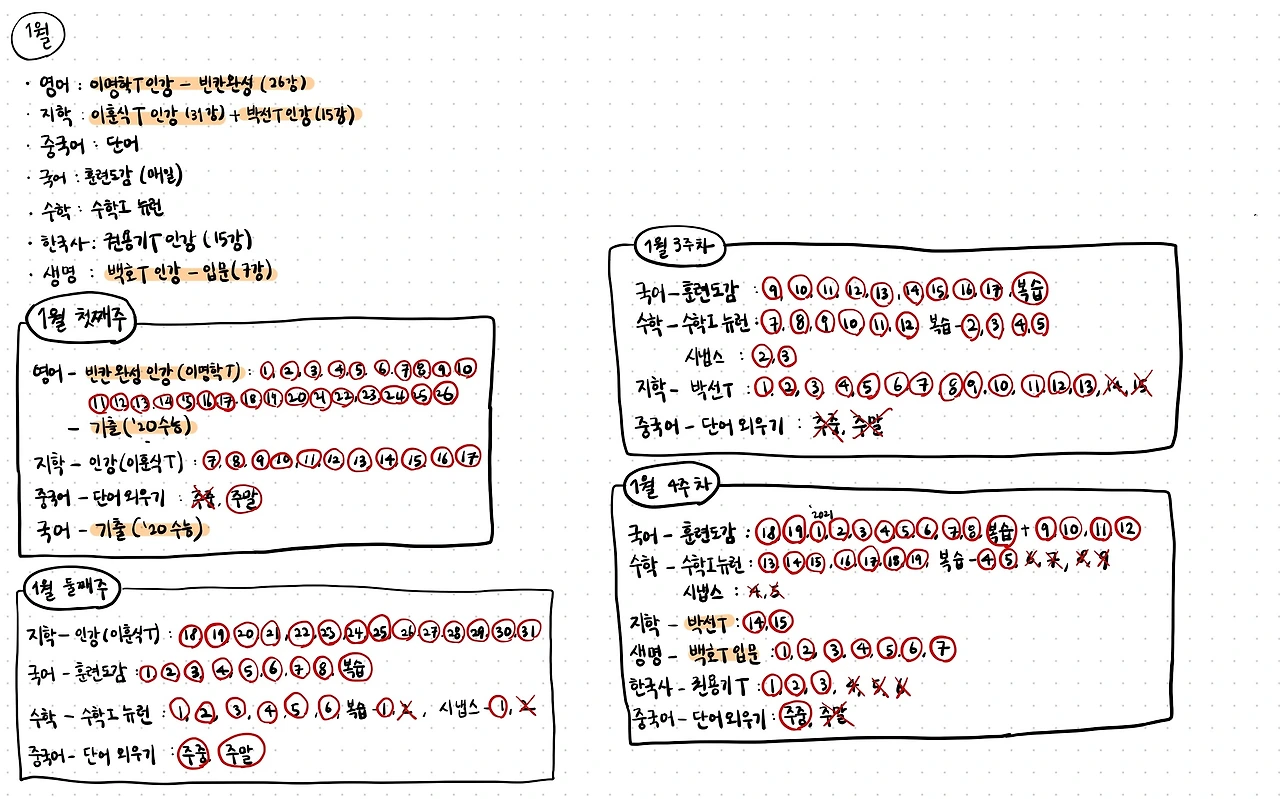 1월
· 영어 : 이명학T 인강 - 빈칸완성 (26강)
· 지학 : 이훈식T 인강 (31강) + 박선T 인강 (15강)
· 중국어 : 단어
· 국어 : 훈련도감 (매일)
· 수학 : 수학I 뉴런
· 한국사 : 권용기T 인강 (15강)
· 생명 : 백호T 인강 - 입문 (7강)
1월 첫째주
영어 - 빈칸 완성 인강 (이명학T) : 1, 2, 3, 4, 5, 6, 7, 8, 9, 10
11 12 13 14 15 16 17 18 19 20 21 22 23 24 25 26
- 기출 ('20 수능)
지학 - 인강 (이훈식T) : 7, 8, 9, 10, 11, 12, 13, 14, 15, 16, 17
중국어 - 단어 외우기 : 주중, 주말
국어 - 기출 ('20 수능)
1월 둘째주
지학 - 인강 (이훈식T) : 18, 19, 20, 21, 22, 23, 24, 25, 26, 27, 28, 29, 30, 31
국어 - 훈련도감 : 1, 2, 3, 4, 5, 6, 7, 8, 복습
수학 - 수학I 뉴런 : 1, 2, 3, 4, 5, 6, 복습 - 1, 2, 시냅스 - 1, 2
중국어 - 단어 외우기 : 주중, 주말
1월 3주차
국어 - 훈련도감 : 9, 10, 11, 12, 13, 14, 15, 16, 17, 복습
수학 - 수학I 뉴런 : 7, 8, 9, 10, 11, 12 복습 - 2, 3 4, 5
시냅스 : 2, 3
지학 - 박선T : 1, 2, 3, 4, 5, 6, 7, 8, 9, 10, 11, 12, 13, 14, 15
중국어 - 단어 외우기 : 주중, 주말
1월 4주차
'2021
국어 - 훈련도감 : 18, 19, 1, 2, 3, 4, 5, 6, 7, 8, 복습 + 9, 10, 11, 12
수학 - 수학I 뉴런 : 13, 14, 15, 16, 17, 18, 19, 복습 - 4, 5, 6, 7, 8, 9
시냅스 : 4, 5
지학 - 박선T : 14, 15
생명 - 백호T 입문 : 1, 2, 3, 4, 5, 6, 7
한국사 - 권용기T : 1, 2, 3, 4, 5, 6
중국어 - 단어 외우기 : 주중, 주말